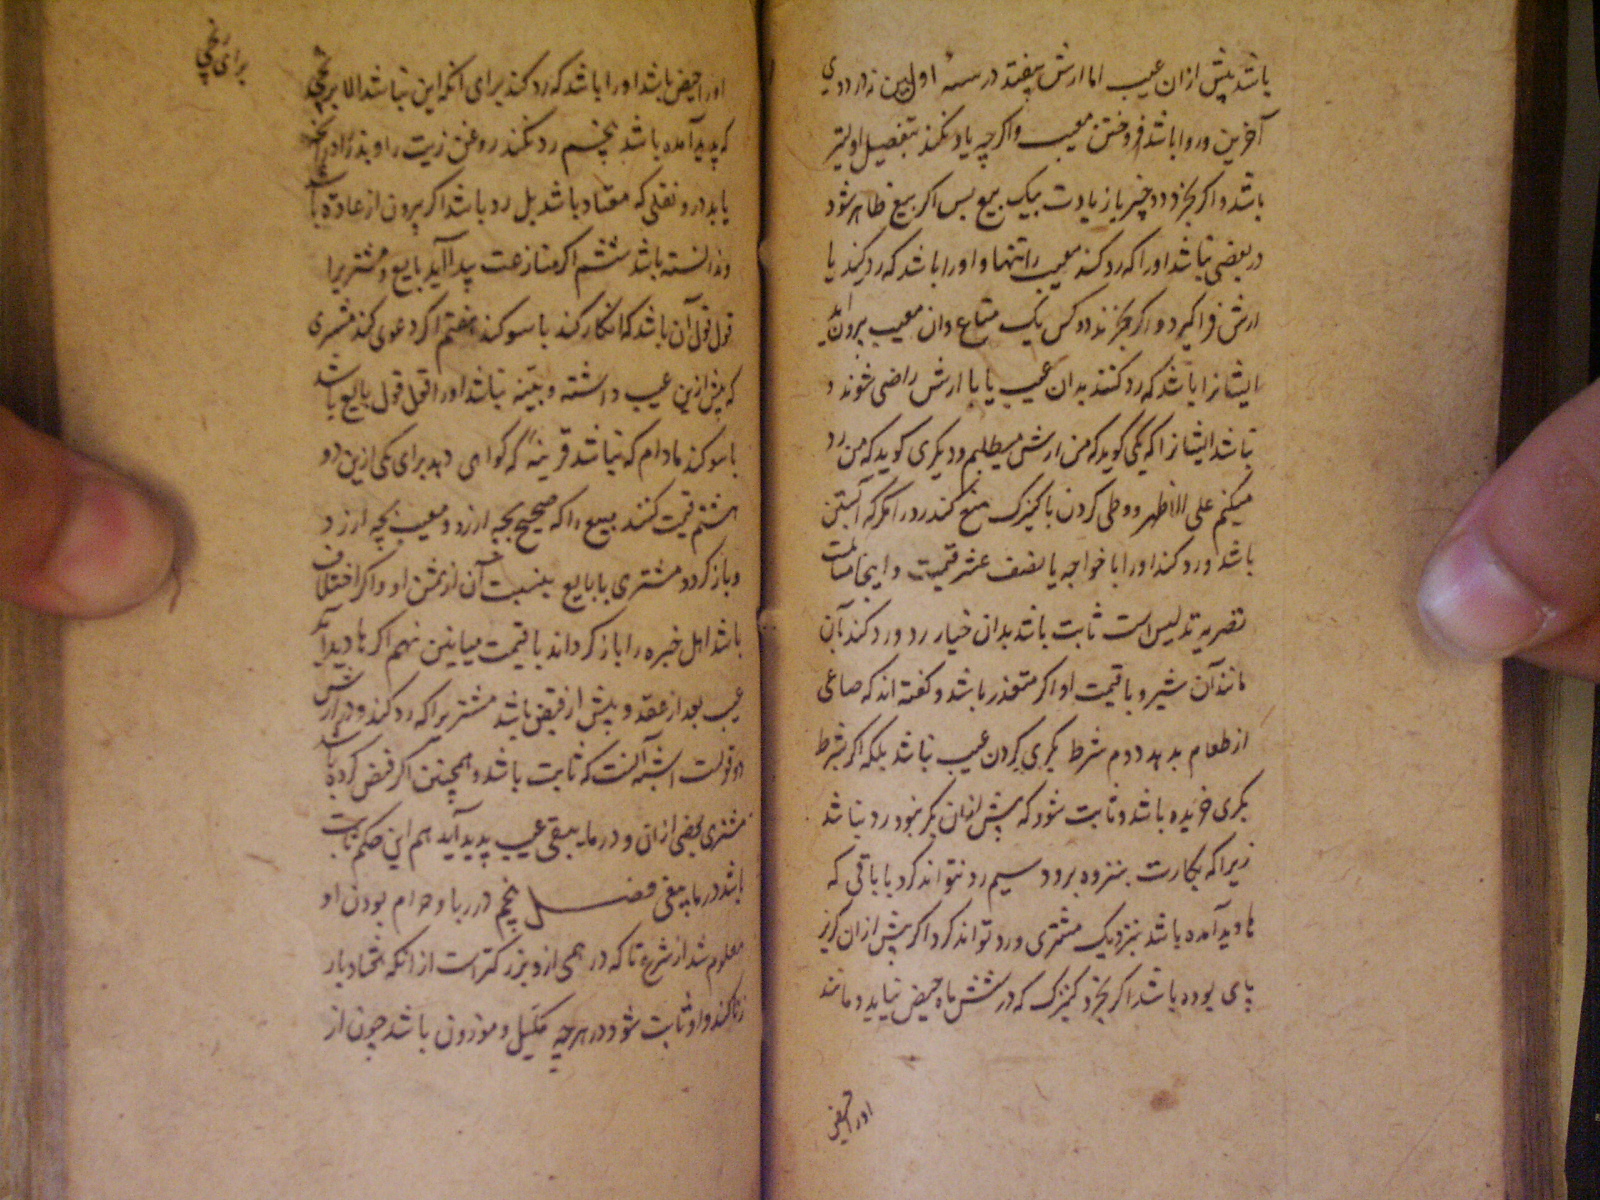 باشد پیش ازان عیب اما ارش بیفتد در
آخرین و روا باشد فروختن معیب و اکر چه یاد نکند بتفصیل اولیتر
باشد و اکر بخرد دو چیز یا زیادت بیک بیع پس اکر بیع ظاهر شود
در بعضی نباشد اورا که رد کند معیب را تنها و اورا باشد که رد کند یا
ارش فراکیرد و اکر بخرند دو کس یک متاع و ان معیب برون آید
ایشانرا باشد که رد کنند بدان عیب یا با ارش راضی شوند و
نباشد ایشانرا که یکی کوید که من ارش میطلبم و دیکری کوید که من رد
میکنم علی الاظهر و وطی کردن با کنیزک منع کند رد را مکر که آبستن
باشد و رد کند اورا با خواجه با نصف عشر قیمت و اینجا
تصریه تدلیس است ثابت باشد بدان خیار رد و رد کند بآن
مانند آن شیر و یا قیمت او اکر متعذر باشد و کفته اند که صاعی
از طعام بدهد دوم شرط بکری کردن عیب نباشد بلکه اکر بشرط
بکری خریده باشد و ثابت شود که پیش ازان بکر نبود رد نباشد
زیرا که بکارت بنزوه برود سیم رد نتواند کرد با باقی که
پدید آمده باشد بنزدیک مشتری و رد تواند کرد اکر پیش ازان کریز
پای بوده باشد اکر بخرد کنیزک که در شش ماه حیض نیاید و مانند
اورا حیض
برای رنجی
اورا حیض باشد اورا باشد که رد کند برای انکه این نباشد الا برنجی
که پدید آمده باشد پنجم رد نکند روغن زیت را و بذر را
یابد درو ثفلی که معتاد باشد بل رد باشد اکر برون از عادة
و ندانسته باشد ششم اکر منازعت پیدا آید بایع و مشتریرا
قول قول آن باشد که انکار کند با سوکند هفتم اکر دعوی کند مشتری
که پیش ازین عیب داشته و بینه نباشد اورا قول قول بایع باشد
با سوکند مادام که نباشد قرینه که کواهی دهد برای یکی ازین دو
هشتم قیمت کنند مبیع را که صحیح بچه ارزد و معیب بچه ارزد
و باز کردد مشتری با بایع بنسبت آن از ثمن او و اکر اختلاف
باشد اهل خبره را باز کرداند با قیمت میانین نهم اکر پدید آید
عیب بعد از عقد و پیش از قبض باشد مشتریرا که رد کند و در ارش
دو قولست اشبه آنست که ثابت باشد و همچنین اکر قبض کرده باشد
مشتری بعضی ازان و در ما یبقی عیب پدید آید هم این حکم ثابت
باشد در ما یبقی فصل پنجم در ربا و حرام بودن او
معلوم شد از شرع تا که درهمی ازو بزرکتر است از انکه هفتاد بار
زنا کند و او ثابت شود در هرچه مکیل و موزون باشد چون از